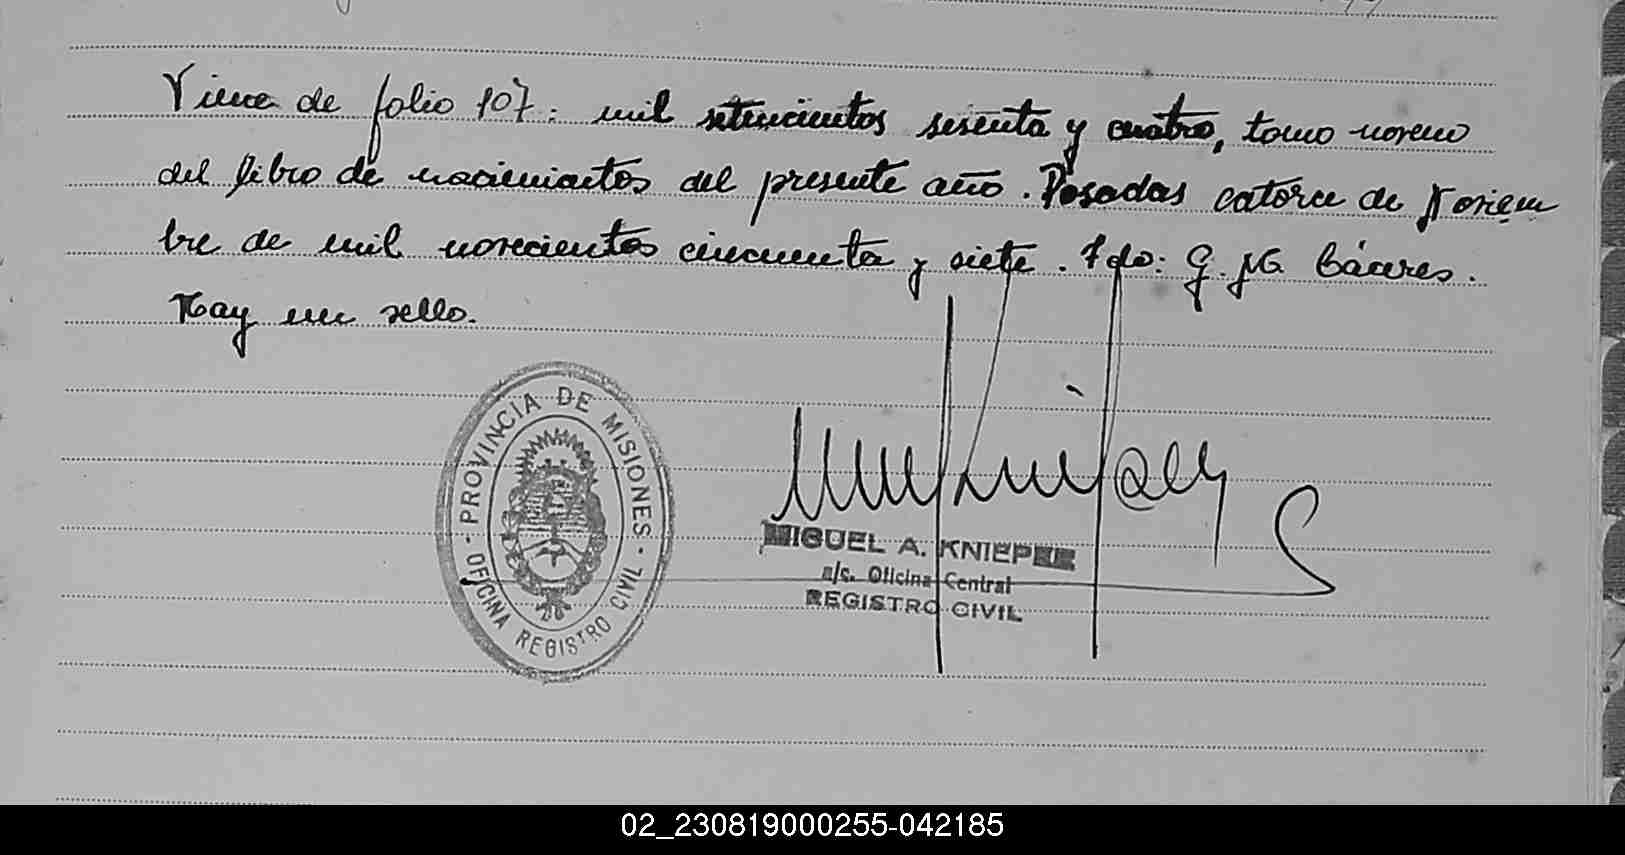 Viene de folio 107: mil setecientos sesenta y cuatro, tomo noveno
del libro de nacimientos del presente año. Posadas catorce de Noviem
bre de mil novecientos cincuenta y siete. Fdo: G. M. Cáceres.
Hay un sello.
· PROVINCIA DE MISIONES ·
OFICINA REGISTRO CIVIL
MIGUEL A. KNIEPER
a/c. Oficina Central
REGISTRO CIVIL
02_230819000255-042185